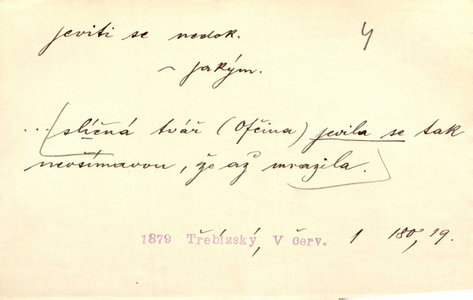 jeviti se nedok. 4
~ jakým.
... sličná tvář (Ofčina) jevila se tak
nevšímavou, že až mrazila.
1879 Třebízský, V červ. 1 180, 19.